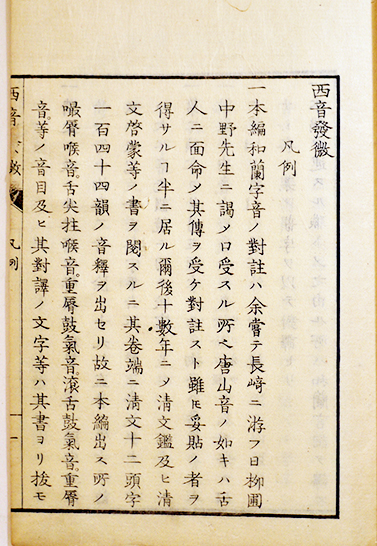 西音發微
凡例
一本編和蘭字音ノ對註ハ余嘗テ長﨑ニ游フ日柳圃
中野先生ニ謁メ口受スル所ヘ唐山音ノ如キハ舌
人ニ面命メ其傳ヲ受ケ對註スト雖𪜈妥貼ノ者ヲ
得サルヿ半ニ居ル爾後十數年ニメ清文鑑及ヒ清
文啓蒙等ノ書ヲ閲スルニ其卷端ニ清文十二頭字
一百四十四韻ノ音釋ヲ出セリ故ニ本編出ス所ノ
嘬脣喉音舌尖柱喉音重脣鼓氣音滾舌鼓氣音重脣
音等ノ音目及ヒ其對譯ノ文字等ハ其書ヨリ拔モ
西音
凡例
一